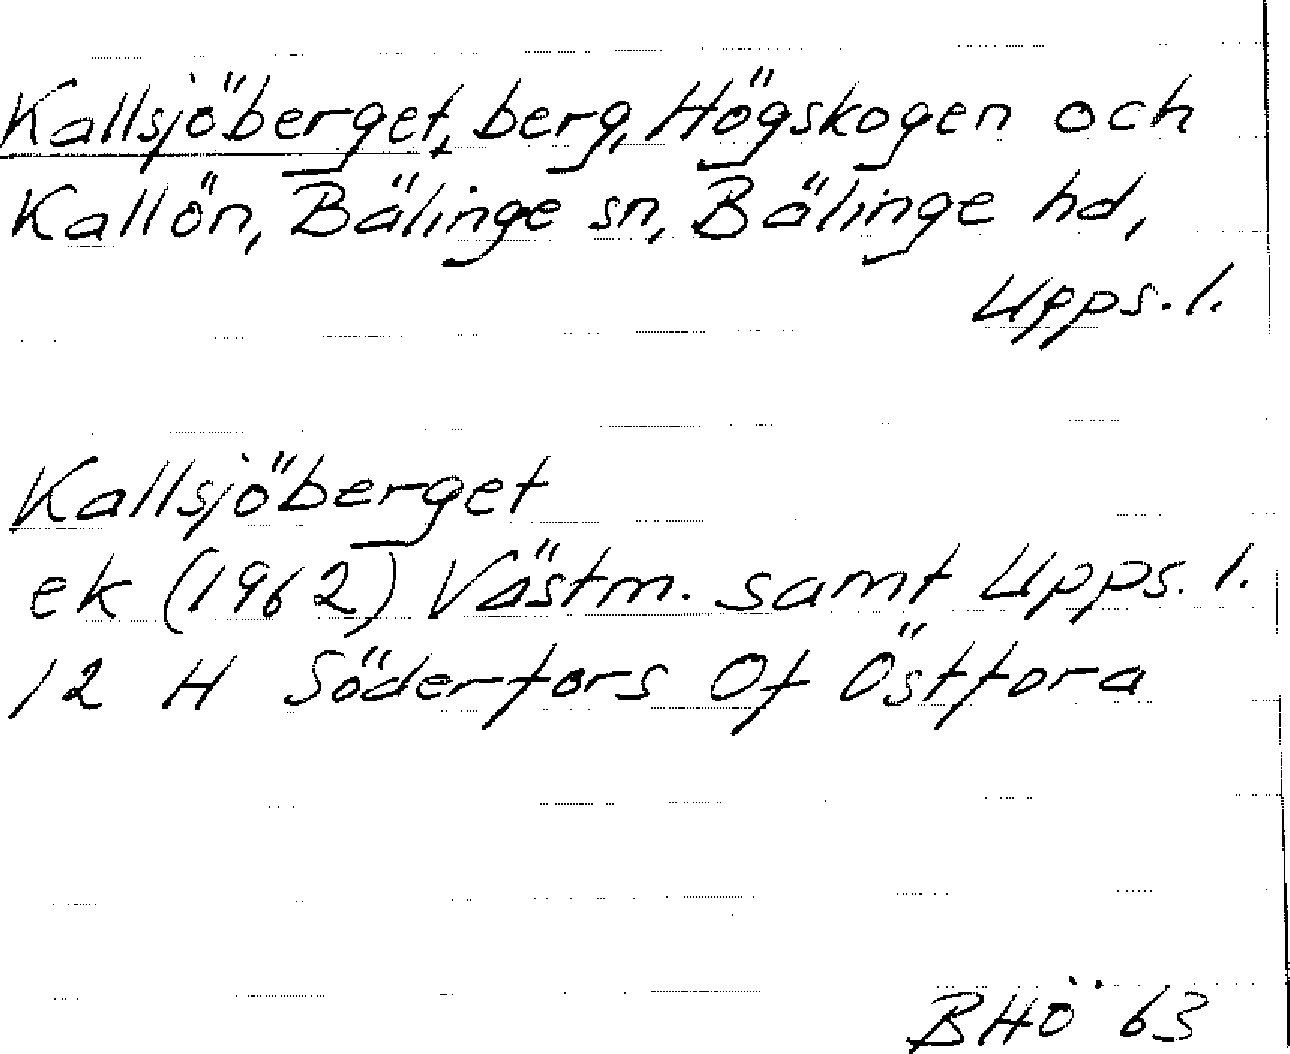 Kallsjöberget, berg, Högskogen och
Kallön, Bälinge sn, Bälinge hd,
Upps. l.
Kallsjöberget
ek (1962) Västm. samt Upps. l.
12 H Söderfors 0f Östfora
BHÖ 63